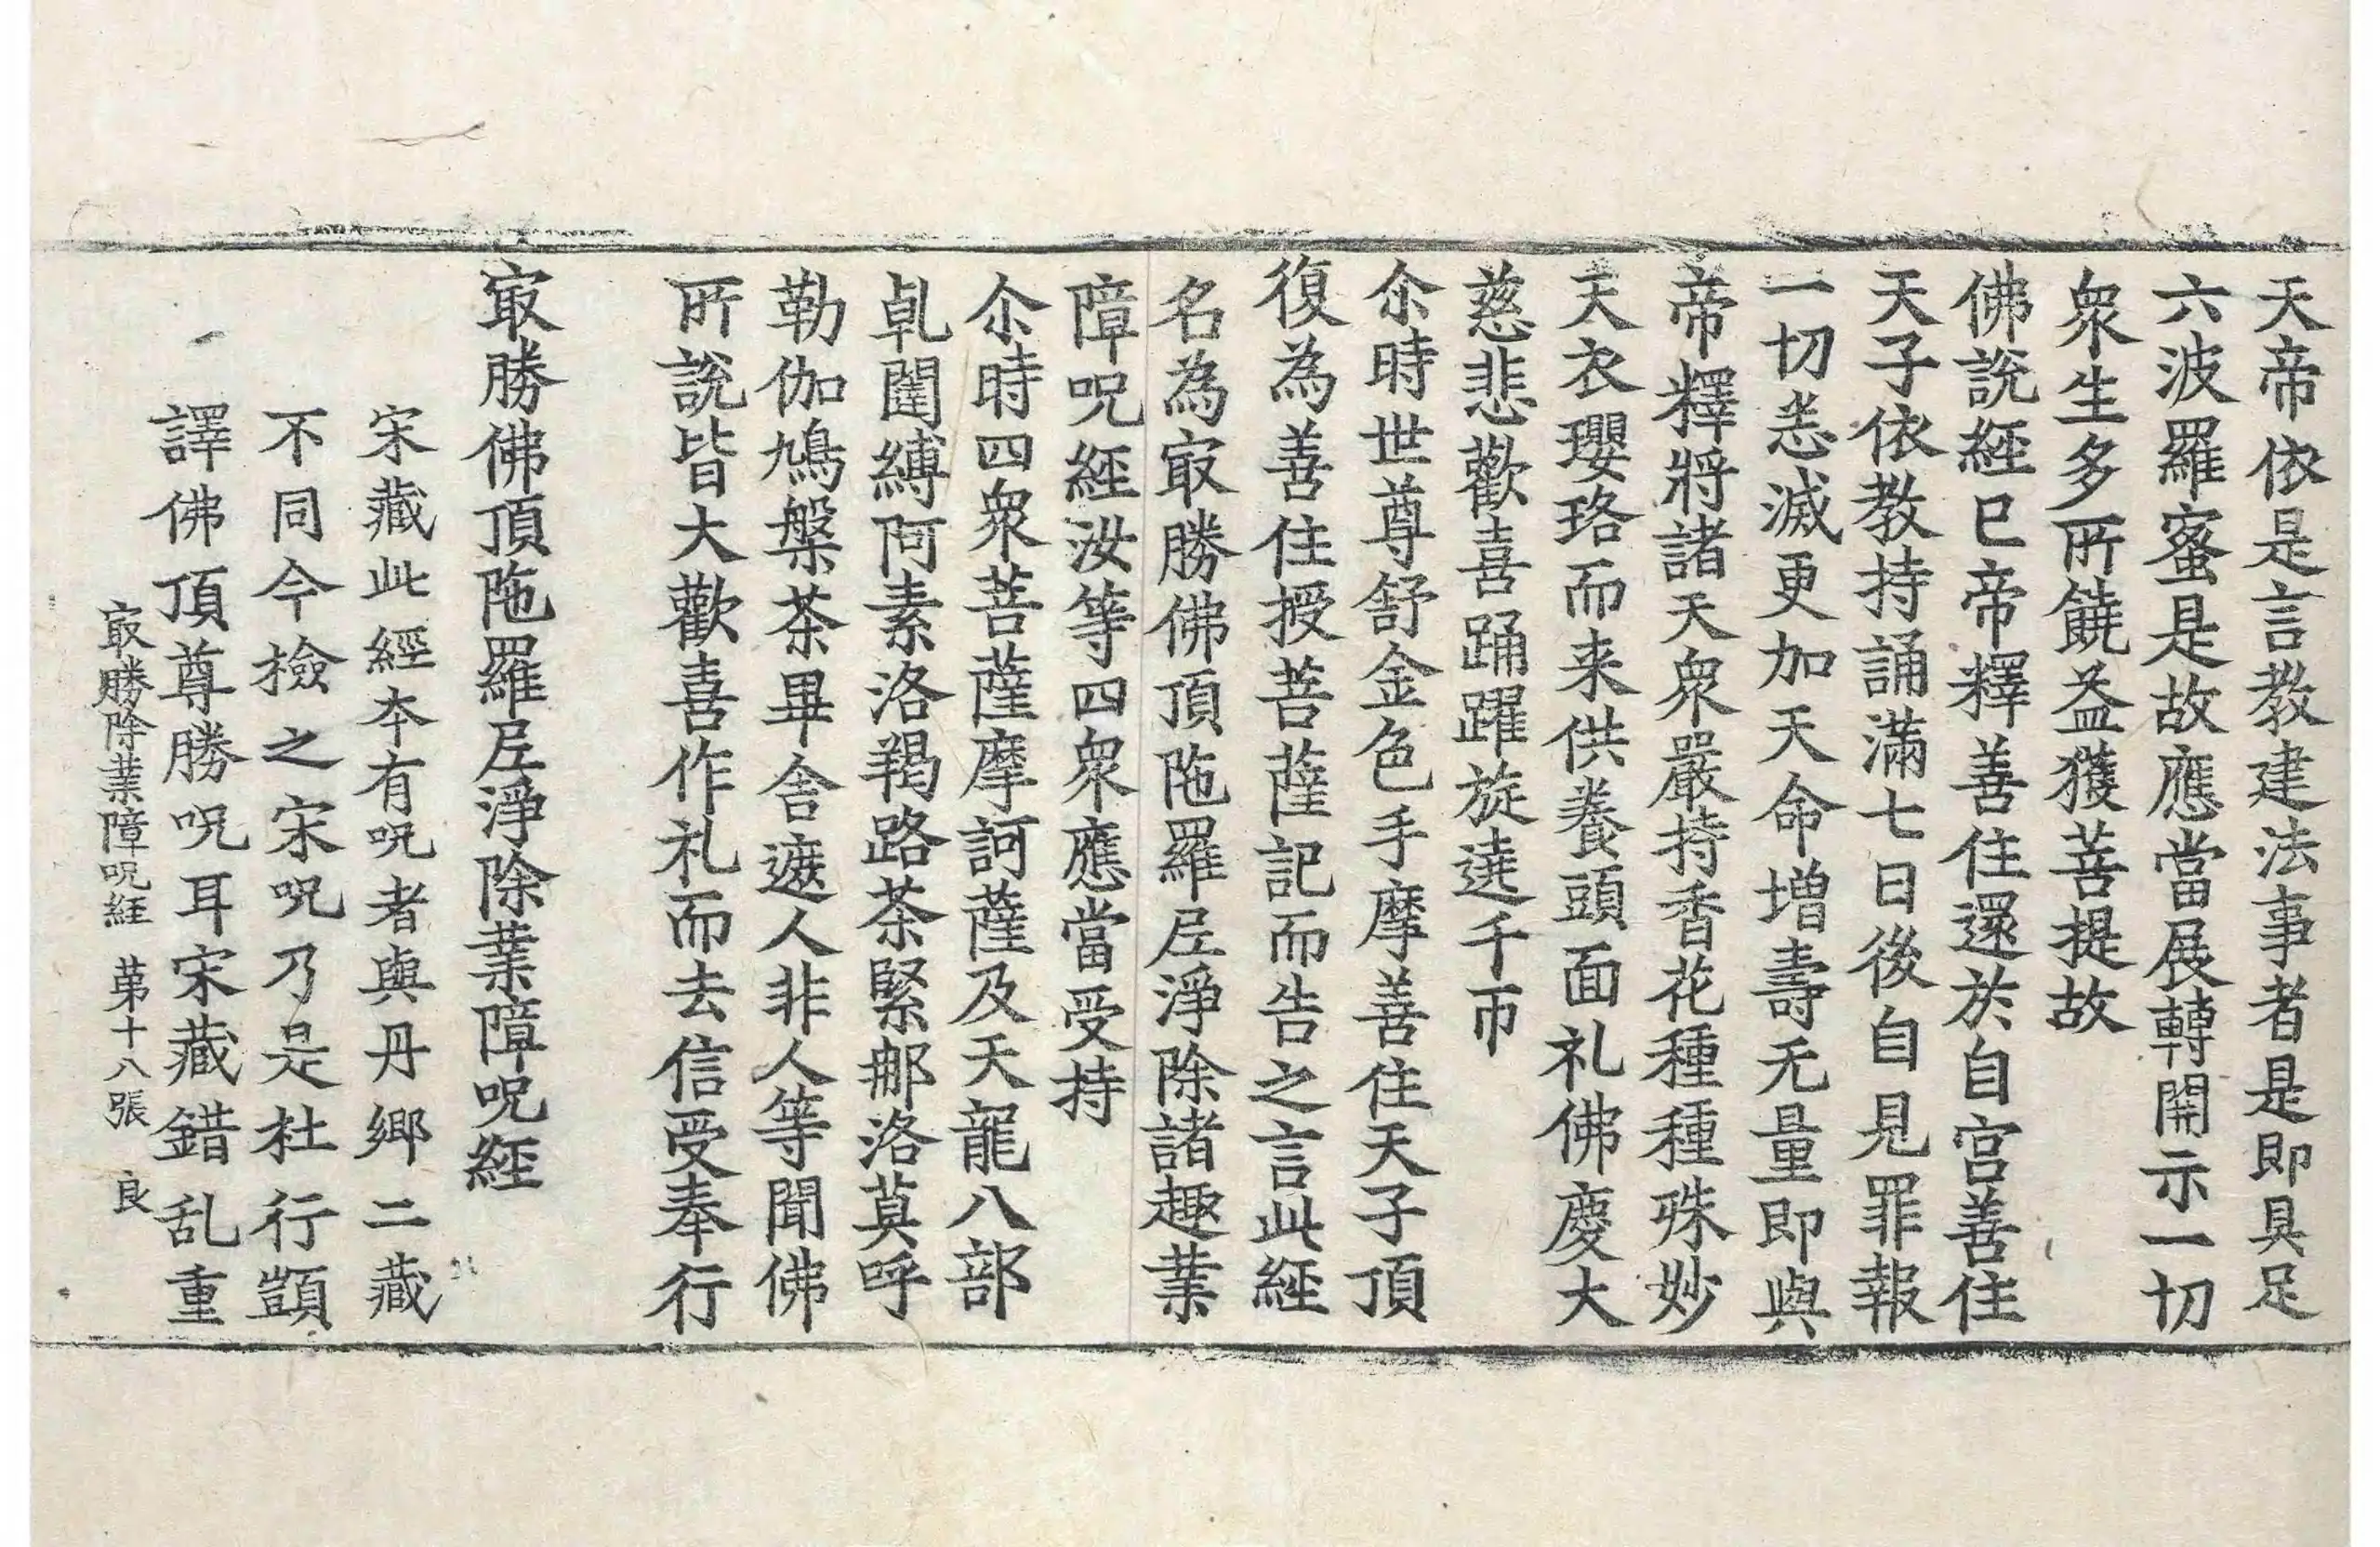 天帝依是言教建法事者是即具足
六波羅蜜是故應當展轉開示一切
衆生多所饒益獲菩提故
佛說經已帝釋善住還於自宮善住
天子依教持誦滿七日後自見罪報
一切恙滅更加天命增壽无量即與
帝釋將諸天衆嚴持香花種種殊妙
天衣瓔珞而来供養頭面礼佛慶大
慈悲歡喜踊躍旋遶千帀
尒時世尊舒金色手摩善住天子頂
復為善住授菩薩記而告之言此經
名為㝡勝佛頂陁羅㞐淨除諸趣業
障呪經汝等四衆應當受持
尒時四衆菩薩摩訶薩及天龍八部
乹闥縛阿素洛羯路茶緊郍洛莫呼
勒伽鳩槃茶畢舍遮人非人等聞佛
所說皆大歡喜作礼而去信受奉行
㝡勝佛頂陁羅㞐淨除業障呪經
宋藏此經本有呪者與丹鄉二藏
不同今撿之宋呪乃是杜行顗
譯佛頂尊勝呪耳宋藏錯乱重
㝡勝除業障呪經 第十八張 良